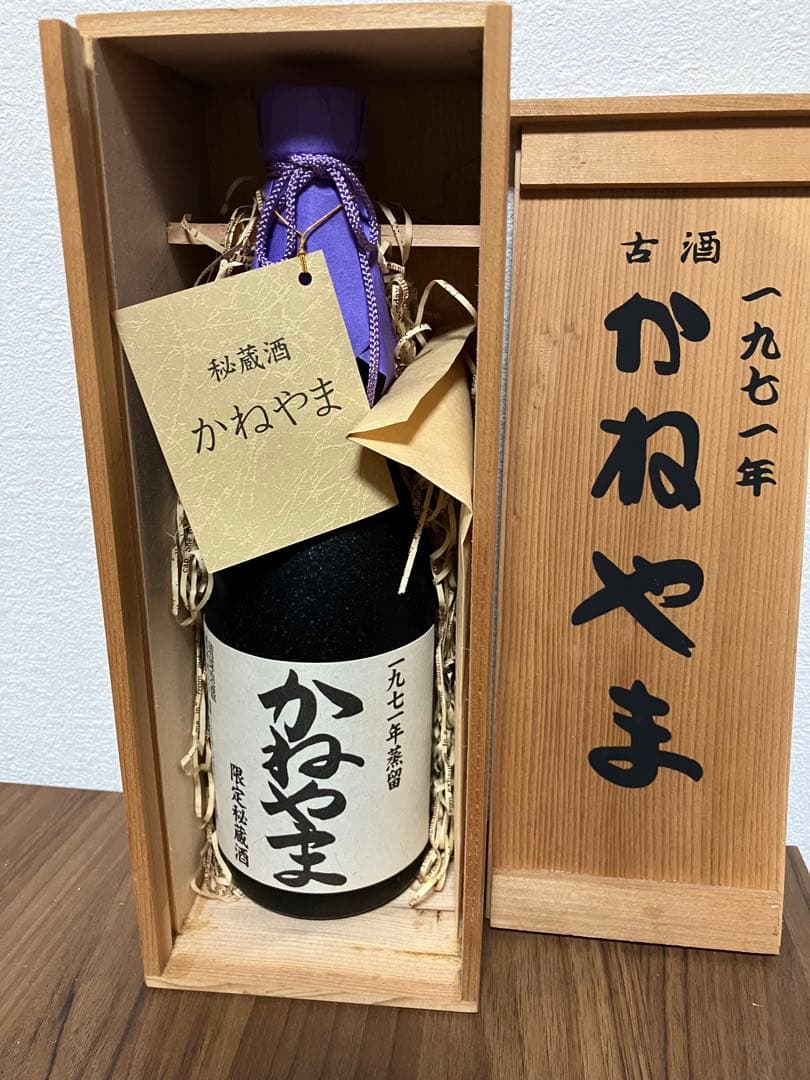 秘蔵酒
かねやま
一九七一年蒸留
かねやま
限定秘蔵酒
古酒
一九七一年
かねやま